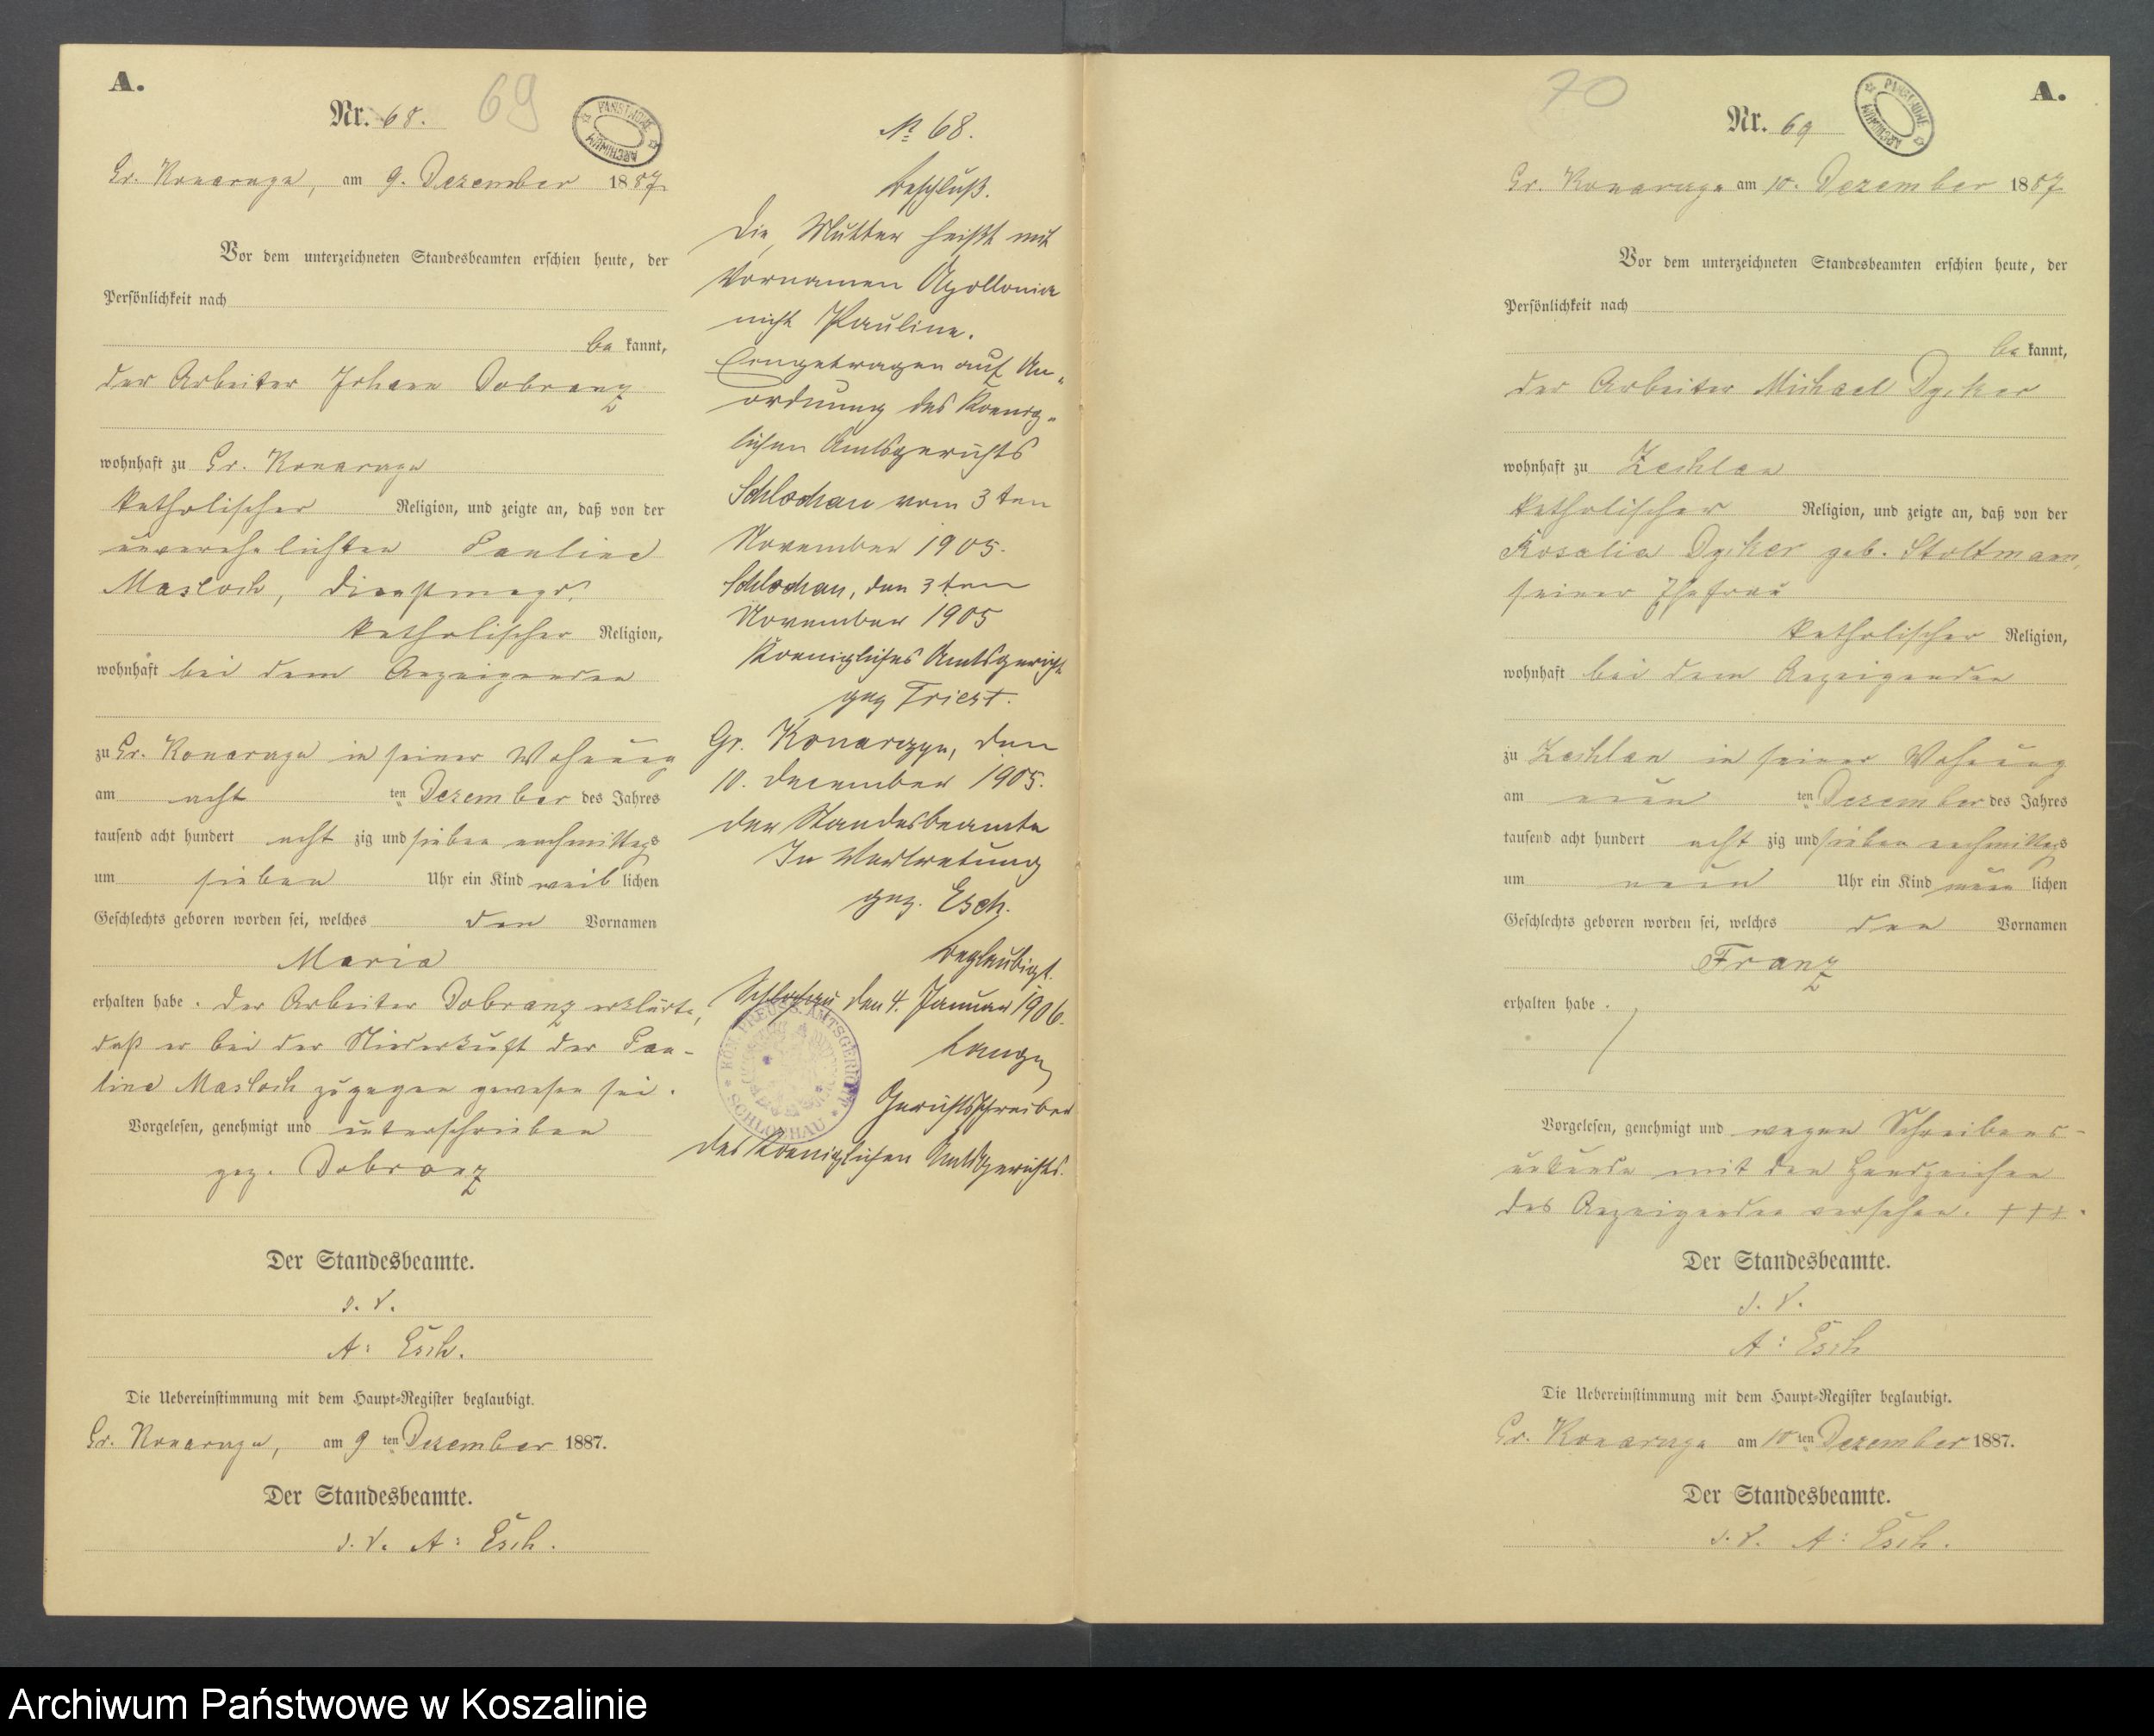 A.
Nr. 68.
69
PAŃSTWOWE ARCHIWUM
Gr. Konarzyn, am 9. Dezember 1887
Vor dem unterzeichneten Standesbeamten erschien heute, der
Persönlichkeit nach
be kannt,
der Arbeiter Johann Dobranz
wohnhaft zu Gr. Konarzyn
katholischer Religion, und zeigte an, daß von der
unverehelichten Pauline
Masloch, Dienstmagd
katholischer Religion,
wohnhaft bei dem Anzeigenden
zu Gr. Konarzyn in seiner Wohnung
am acht ten Dezember des Jahres
tausend acht hundert acht zig und sieben nachmittags
um sieben Uhr ein Kind weib lichen
Geschlechts geboren worden sei, welches den Vornamen
Maria
erhalten habe. Der Arbeiter Dobranz erklärte,
daß er bei der Niederkunft der Pau-
line Masloch zugegen gewesen sei.
Vorgelesen, genehmigt und unterschrieben
gez. Dobranz
Der Standesbeamte.
J. V.
A: Esch.
Die Uebereinstimmung mit dem Haupt-Register beglaubigt.
Gr. Konarzyn, am 9 ten Dezember 1887.
Der Standesbeamte.
J. V. A: Esch.
№ 68.
Beschluß.
Die Mutter heißt mit
Vornamen Apollonia
nicht Pauline.
Eingetragen auf An-
ordnung des Koenig-
lichen Amtsgerichts
Schlochau vom 3ten
November 1905.
Schlochau, den 3ten
November 1905
Koenigliches Amtsgericht
gez Triest.
Gr. Konarzyn, den
10. December 1905.
Der Standesbeamte
In Vertretung
gez. Esch.
Beglaubigt.
Schlochau den 4. Januar 1906.
KÖN. PREUSS. AMTSGERICHT
SCHLOCHAU
Gerichtsschreiber
des Koeniglichen Amtsgerichts.
A.
Nr. 69
70
PAŃSTWOWE ARCHIWUM
Gr. Konarzyn am 10. Dezember 1887
Vor dem unterzeichneten Standesbeamten erschien heute, der
Persönlichkeit nach
be kannt,
der Arbeiter Michael Dycker
wohnhaft zu Zechlau
katholischer Religion, und zeigte an, daß von der
Rosalia Dycker geb. Stoltmann,
seiner Ehefrau
katholischer Religion,
wohnhaft bei dem Anzeigenden
zu Zechlau in seiner Wohnung
am neun ten Dezember des Jahres
tausend acht hundert acht zig und sieben nachmittags
um neun Uhr ein Kind männ lichen
Geschlechts geboren worden sei, welches den Vornamen
Franz
erhalten habe.
Vorgelesen, genehmigt und wegen Schreibens-
unkunde mit den Handzeichen
des Anzeigenden versehen. +++.
Der Standesbeamte.
J. V.
A: Esch
Die Uebereinstimmung mit dem Haupt-Register beglaubigt.
Gr. Konarzyn am 10 ten Dezember 1887.
Der Standesbeamte.
J. V. A: Esch.
Archiwum Państwowe w Koszalinie